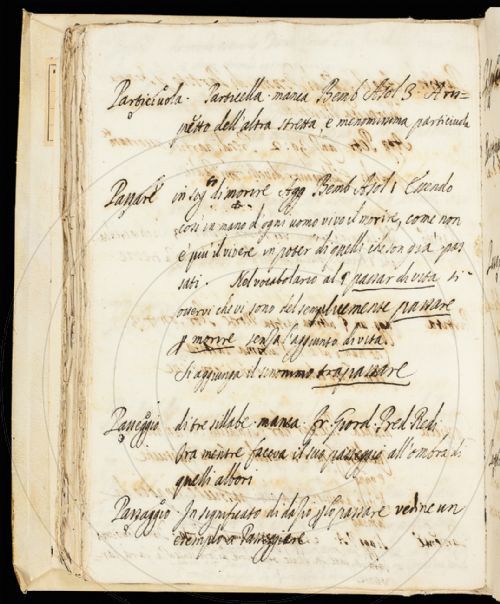 Particiuola. Particella. manca Bemb Asol 3. A ris-
petto dell'altra stretta, e menomissima particiuola
Passare in sig.to di morire Agg Bemb Asol 1 Essendo
così in mano d'ogni uomo vivo il morire, come non
è più il vivere in poter di quelli che son già pas
sati. Nel vocabolario al § passar di vita si
che vi sono del semplicemente passare
p morire senza l'aggiunto di vita.
Si aggiunga il sinonimo trapassare
Passeggio di tre sillabe. manca. Fr. Giord. Pred. Red.
Ora mentre faceva il suo passeggio all'ombra di
quelli albori
Passaggio In significato di dazio p lo passare vedine un
esempio a